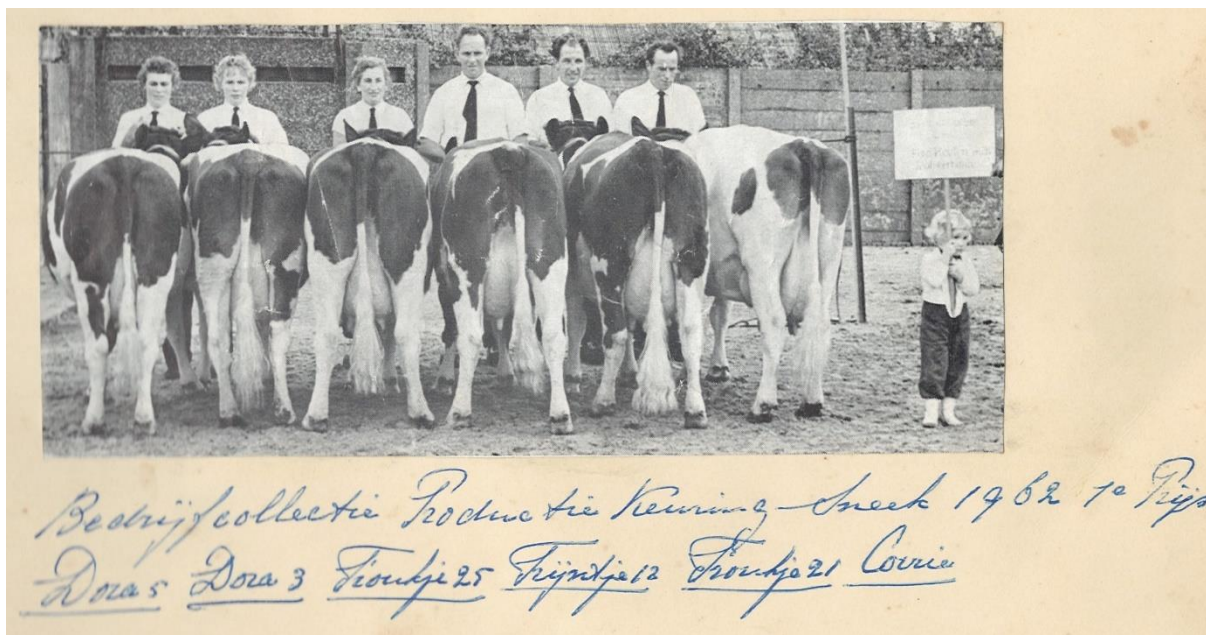 Bedrijfcollectie Productie Keuring Sneek 1962 1e Prijs
Dora 5 Dora 3 Froukje 25 Trijntje 12 Froukje 21 Corrie